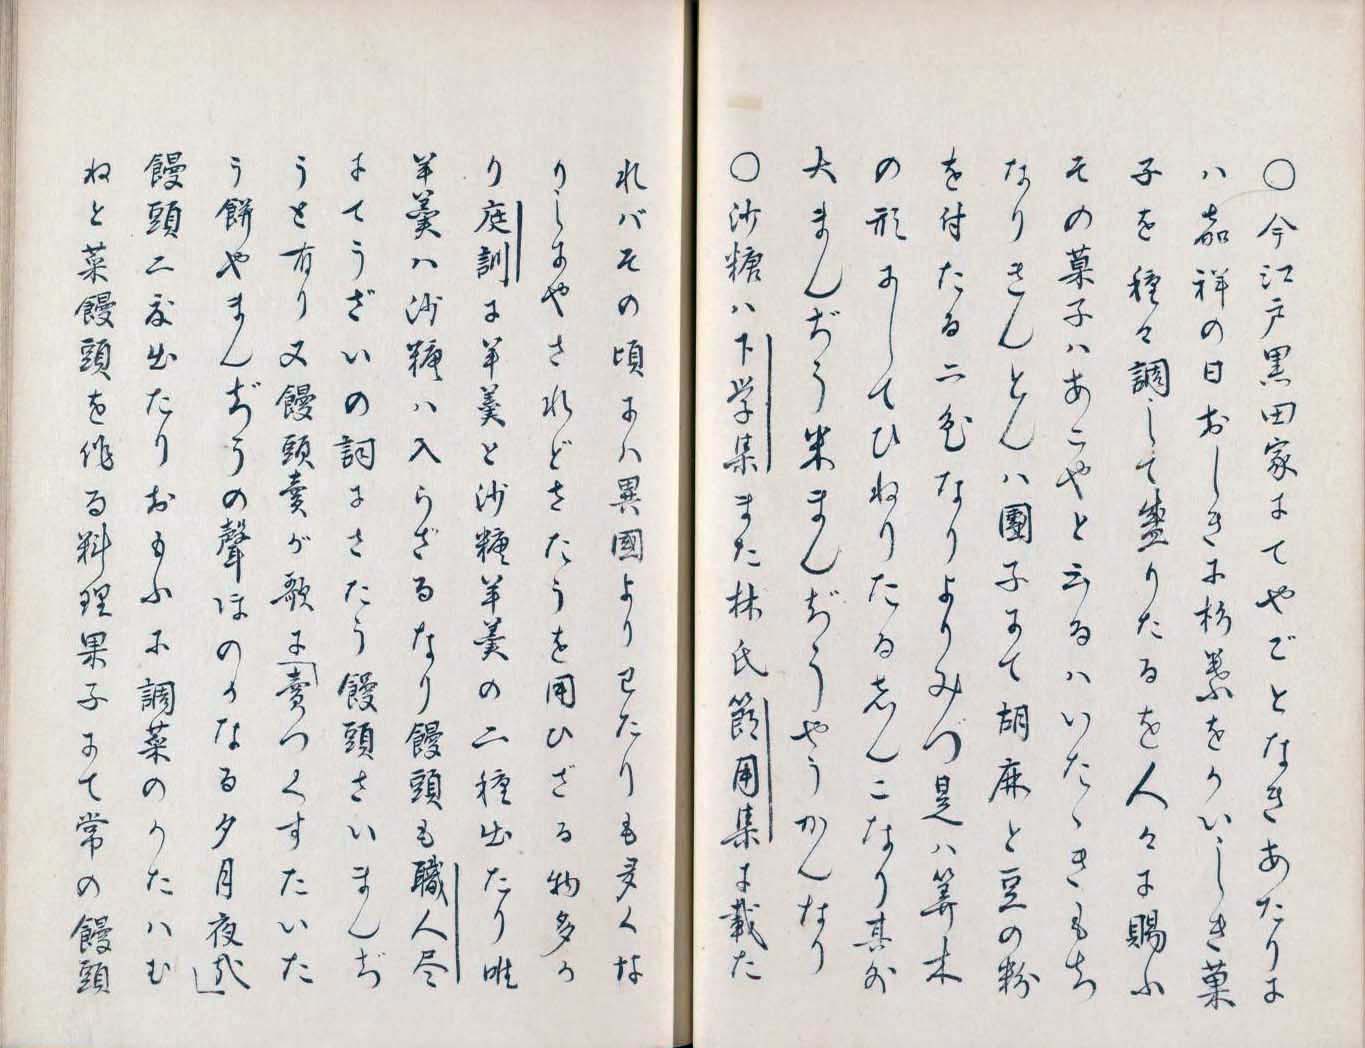 〇今江戸黒田家にてやごとなきあたりに
ハ嘉祥の日おしきに杉葉をかいしき菓
子を種々調して盛りたるを人々に賜ふ
その菓子ハあこやと云るハいたゝきもち
なりきんとんハ團子にて胡麻と豆の粉
を付たる二色なりよりみづ是ハ算木
の形にしてひねりたるしんこなり其外
大まんぢう米まんぢうやうかんなり
〇沙糖ハ下学集また林氏節用集に載た
れバその頃にハ異國より已たりも多くな
りしにやされどさたうを用ひざる物多か
り庭訓に羊羹と沙糖羊羹の二種出たり唯
羊羹ハ沙糖ハ入らざるなり饅頭も職人尽
にてうざいの詞にさたう饅頭さいまんぢ
うと有り又饅頭賣が歌に「賣つくすたいた
う餅やまんぢうの聲ほのかなる夕月夜哉」
饅頭二色出たりおもふに調菜のかたハむ
ねと菜饅頭を作る料理果子にて常の饅頭